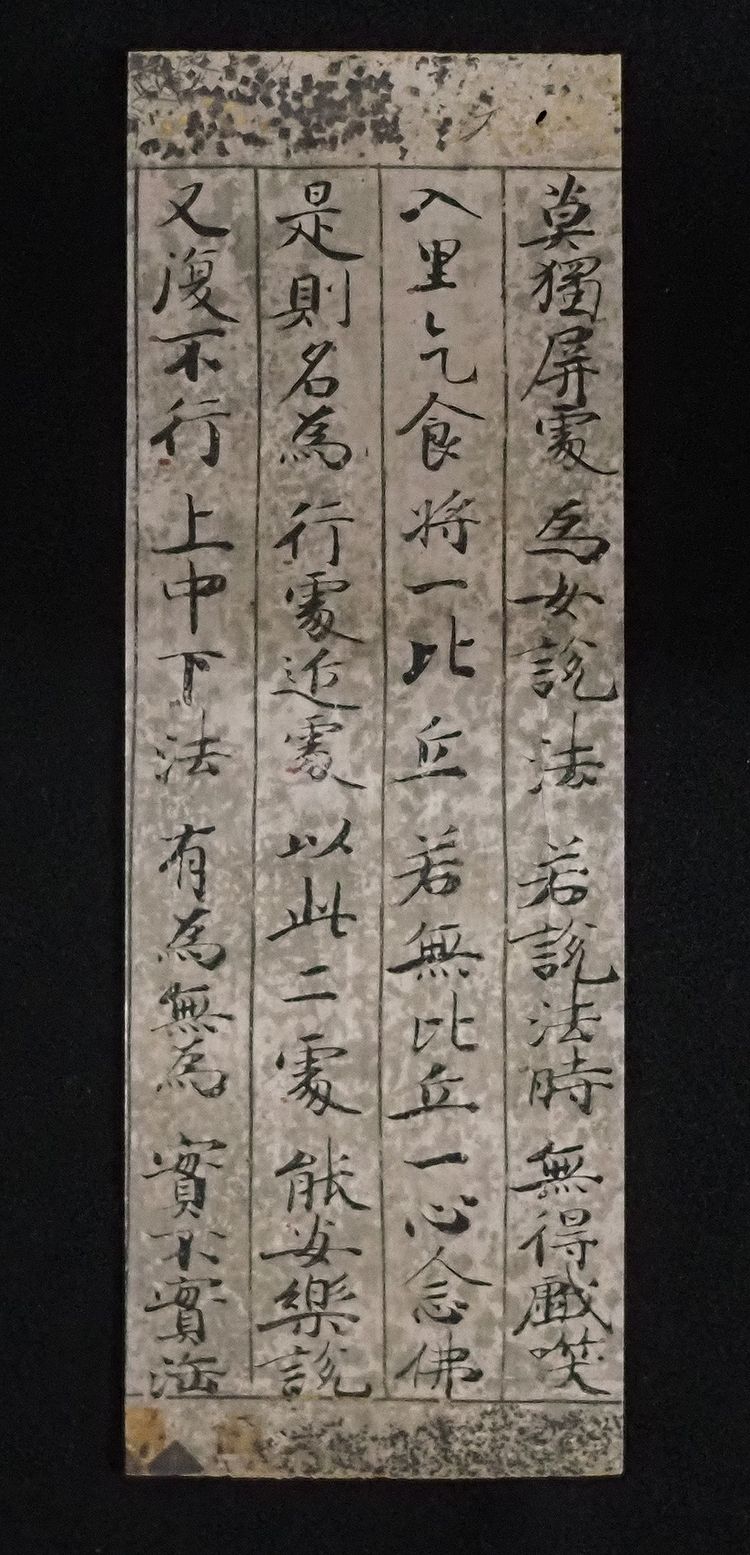 莫獨屏處 為女說法 若說法時 無得戲笑
入里乞食 將一比丘 若無比丘 一心念佛
是則名為 行處近處 以此二處 能安樂說
又復不行 上中下法 有為無為 實不實法